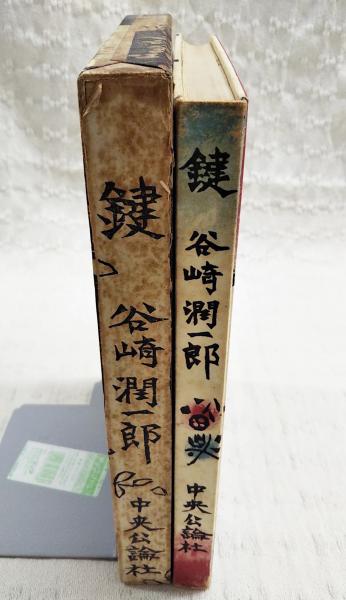 鍵
谷崎潤一郎
中央公論社
鍵
谷崎潤一郎
中央公論社